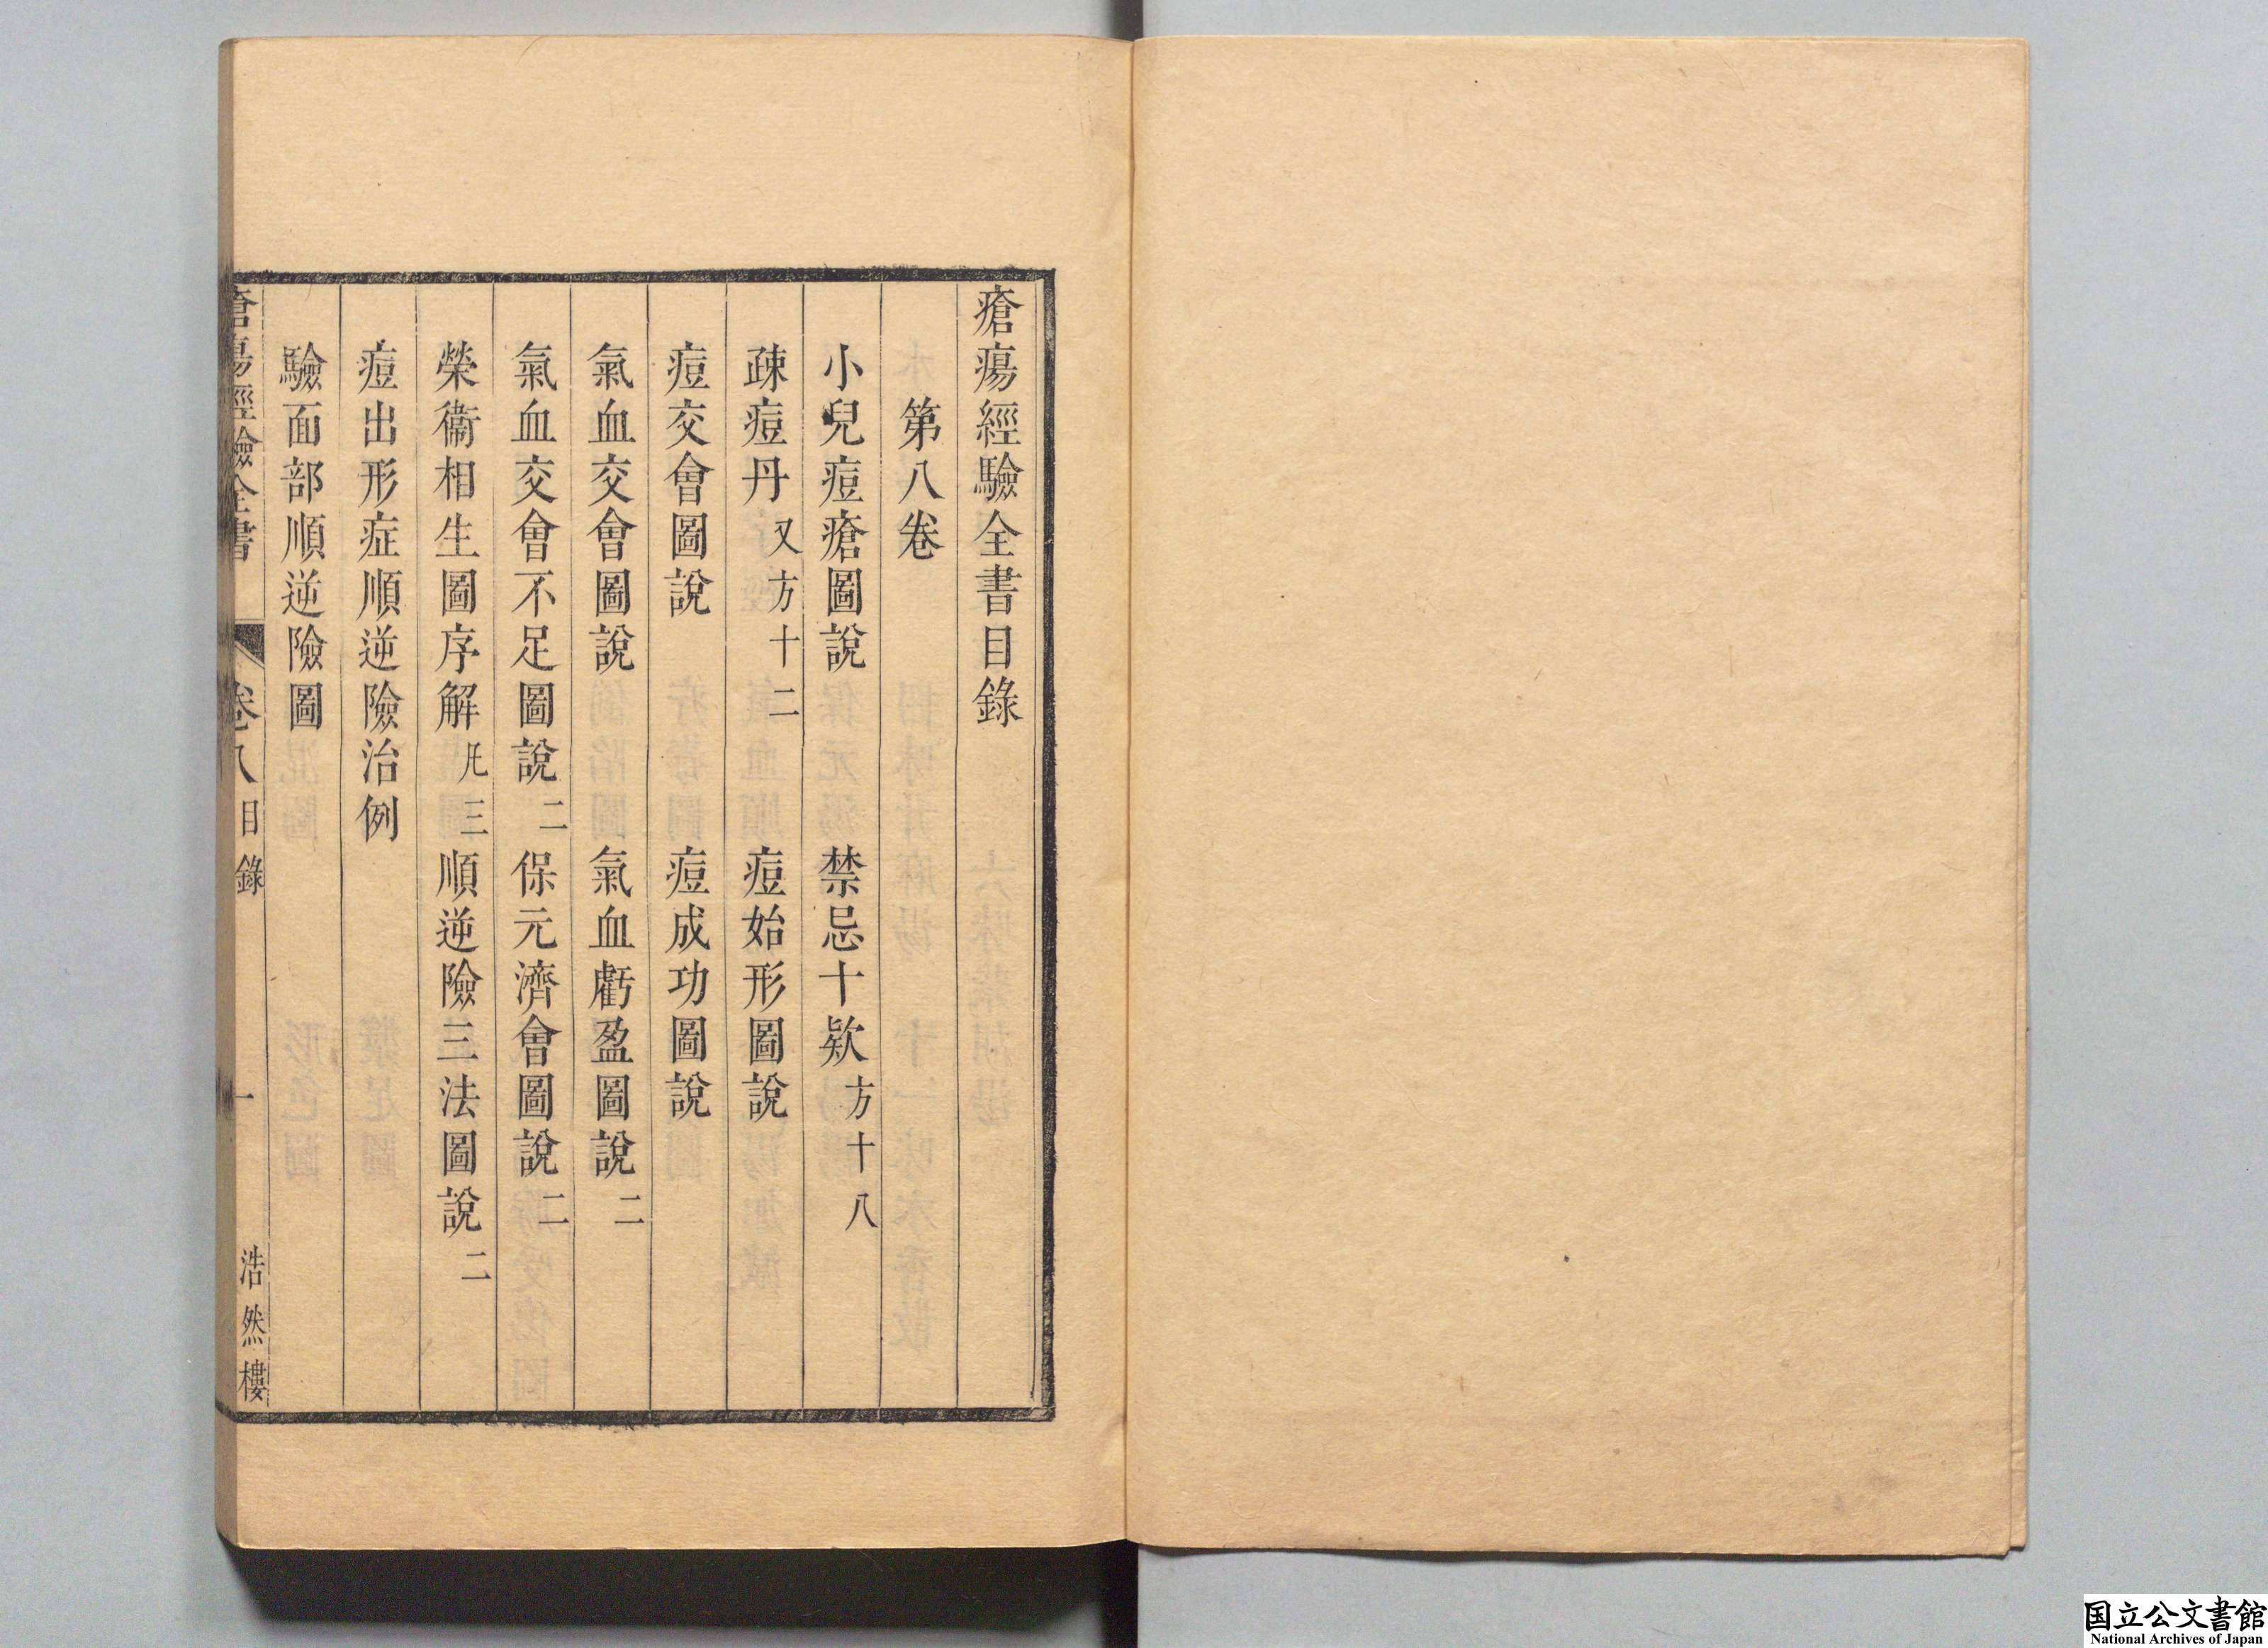 瘡瘍經驗全書目錄
第八卷
小兒痘瘡圖說　禁忌十欵方十八
疎痘丹又方十二　痘始形圖說
痘交會圖說　痘成功圖說
氣血交會圖說　氣血虧盈圖說二
氣血交會不足圖說二　保元濟會圖說二
榮衞相生圖序解凡三　順逆險三法圖說二
痘出形症順逆險治例
驗面部順逆險圖
瘡瘍經驗全書　卷八目錄　一　浩然樓
国立公文書館
National Archives of Japan